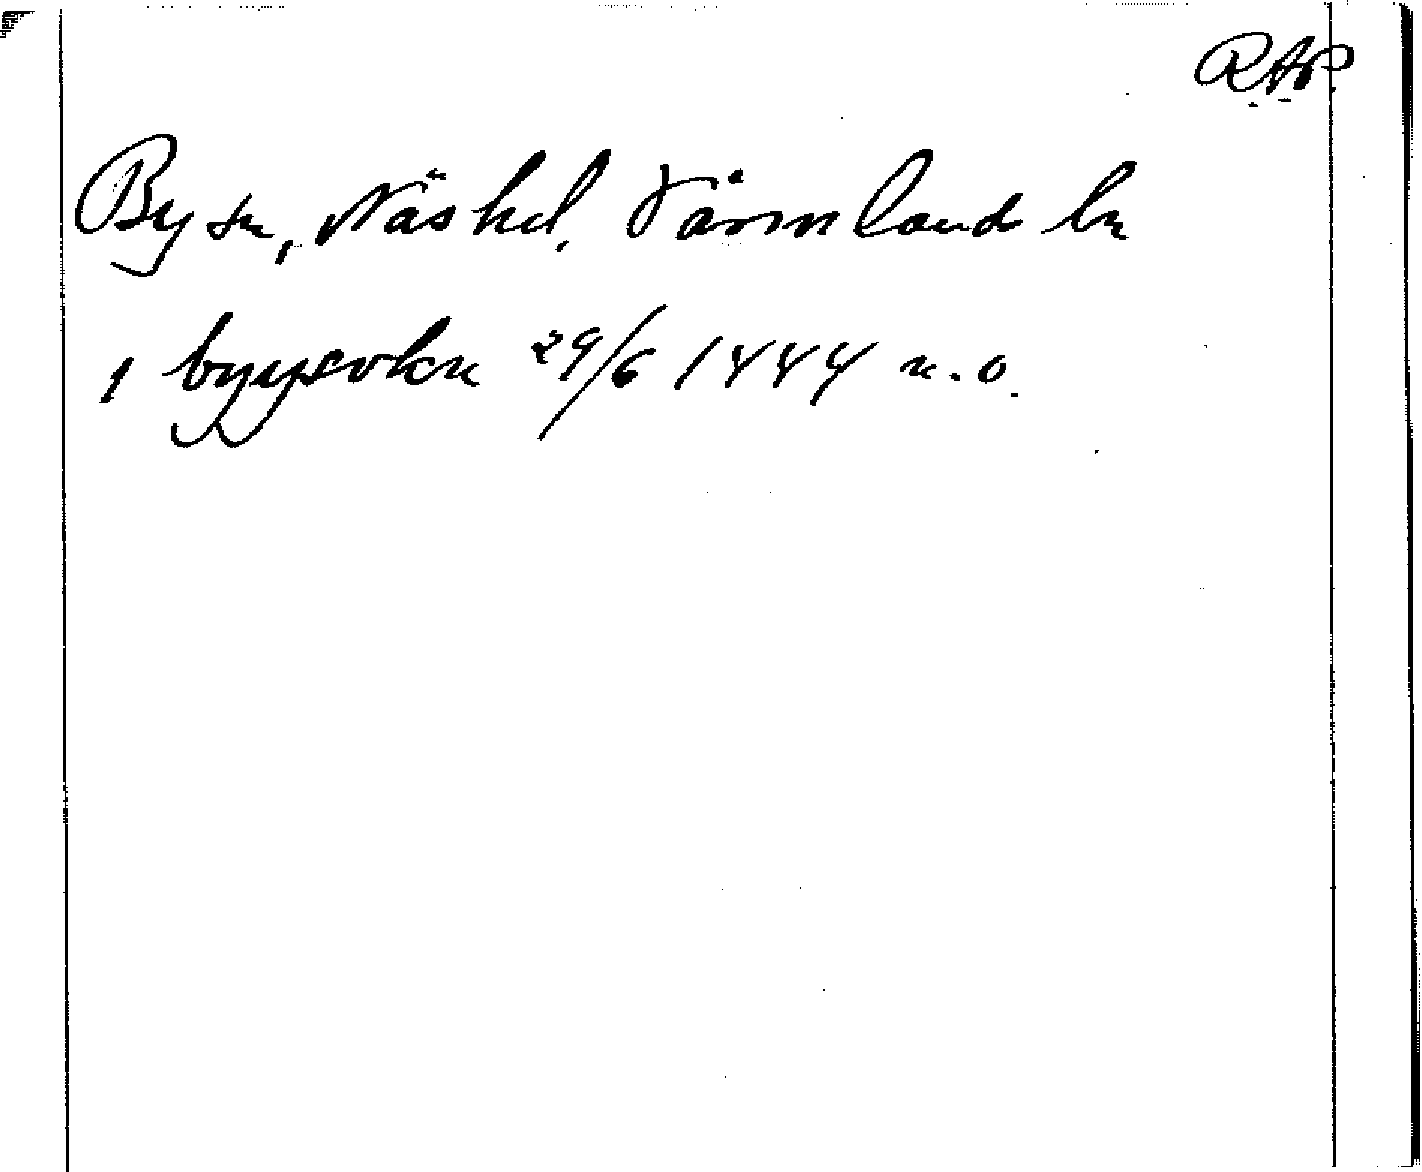 RAP
By sn, Näs hd, Värmlands ln
i byysokn 29/6 1444 n.o.